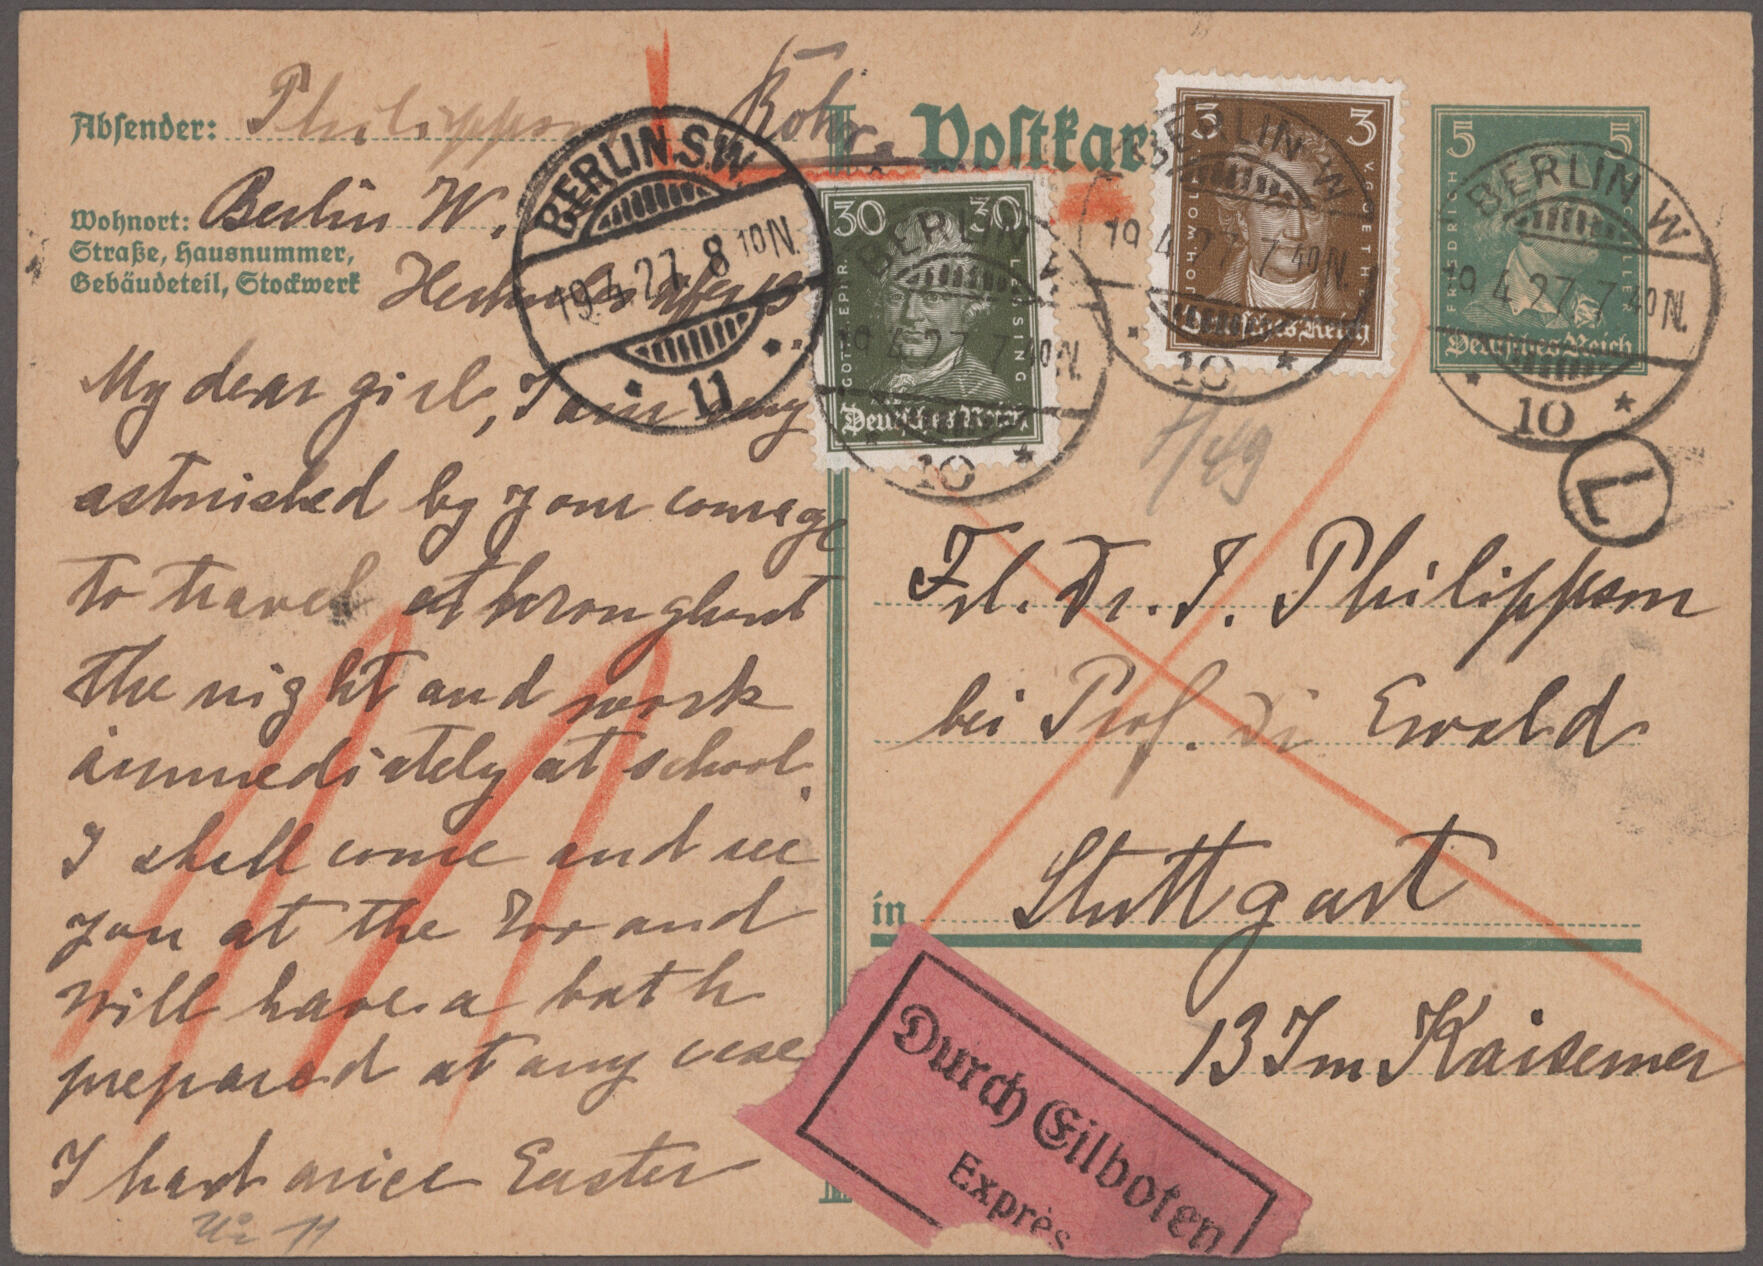 Absender: Philippson Röhr.
Postkar
Wohnort: Berlin W.
Straße, Hausnummer,
Gebäudeteil, Stockwerk
BERLIN SW
19.4.27. 8 10N.
* 11 *
30 30
GOTTH. EPHR. LESSING
Deutsches Reich
BERLIN W
19.4.27. 7 40N.
10 *
3 3
JOH. WOLFG. V. GOETHE
Deutsches Reich
BERLIN W
19.4.27. 7 40N.
* 10 *
5 5
FRIEDRICH SCHILLER
Deutsches Reich
BERLIN W
19.4.27. 7 40N.
* 10 *
L
My dear girl, I am very
astonished by your courage
to travel throughout
the night and work
immediately at school.
I shall come and see
you at the Zoo and
will have a bath
prepared at any case
I had a nice Easter
Frl. Dr. J. Philippson
bei Prof. Dr Ewald
in Stuttgart
13 Im Kaisemer
Durch Eilboten
Exprès